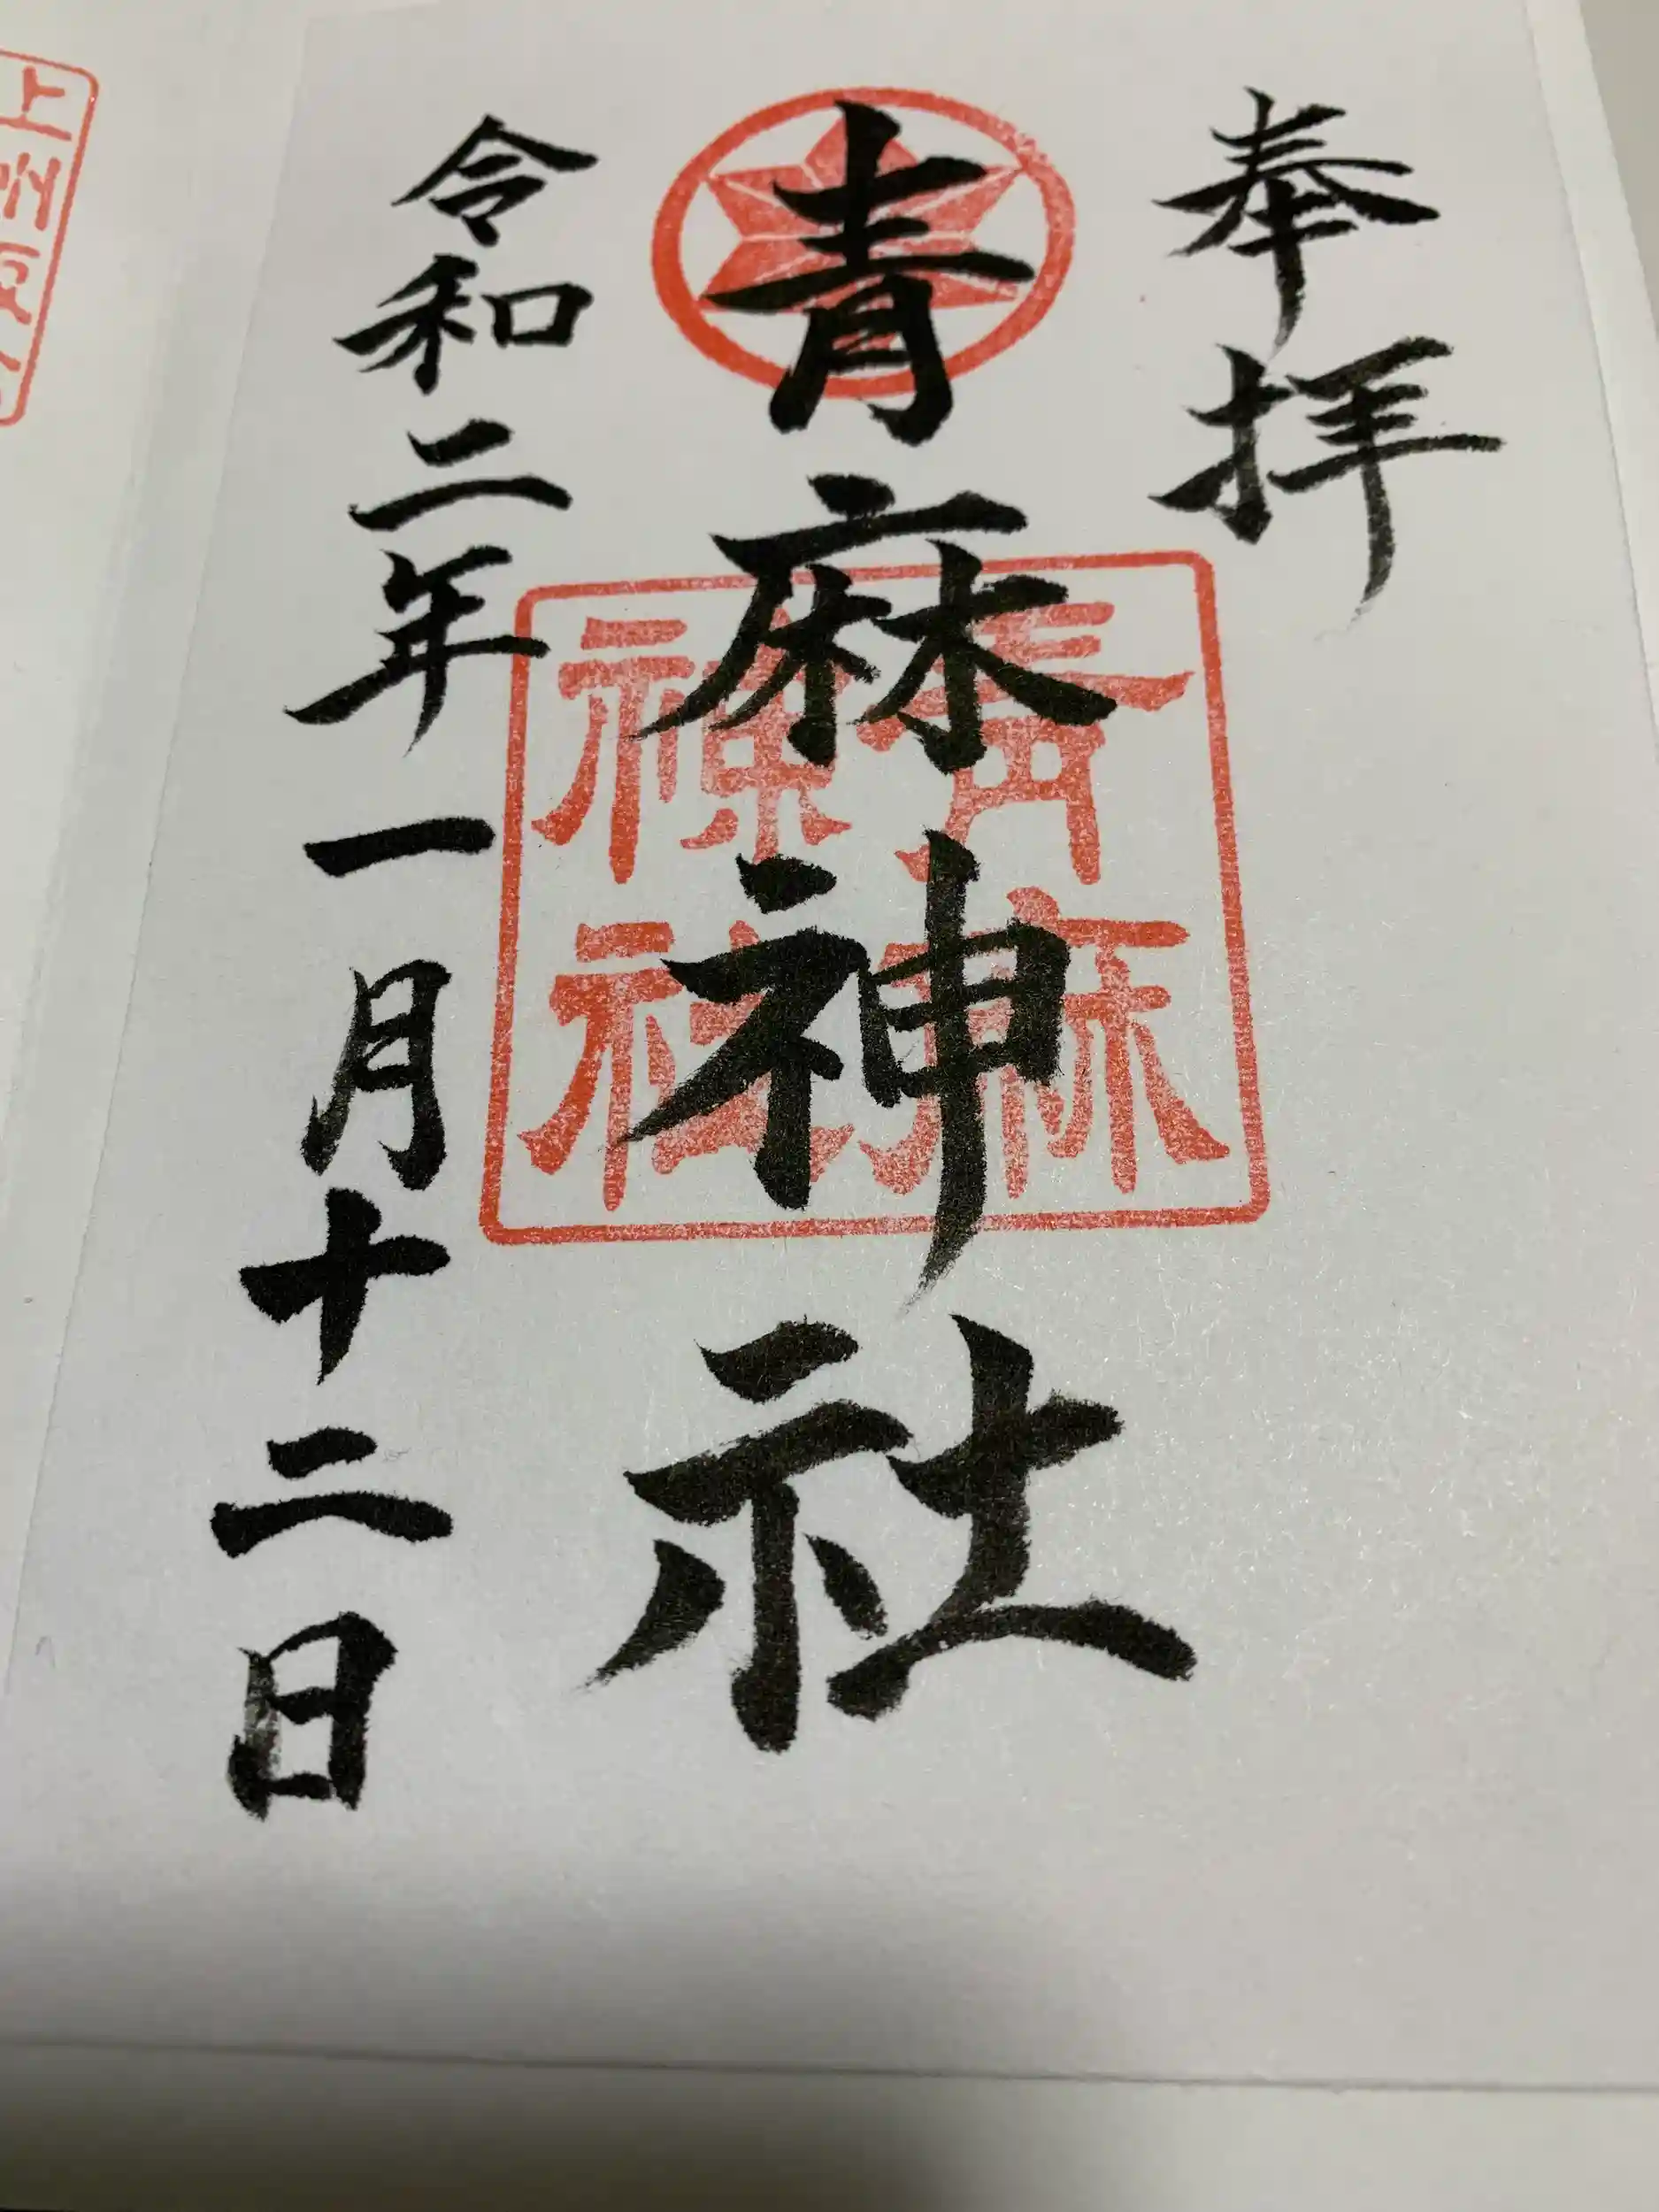 奉拝
青麻神社
青麻
神社
令和二年一月十二日
上州